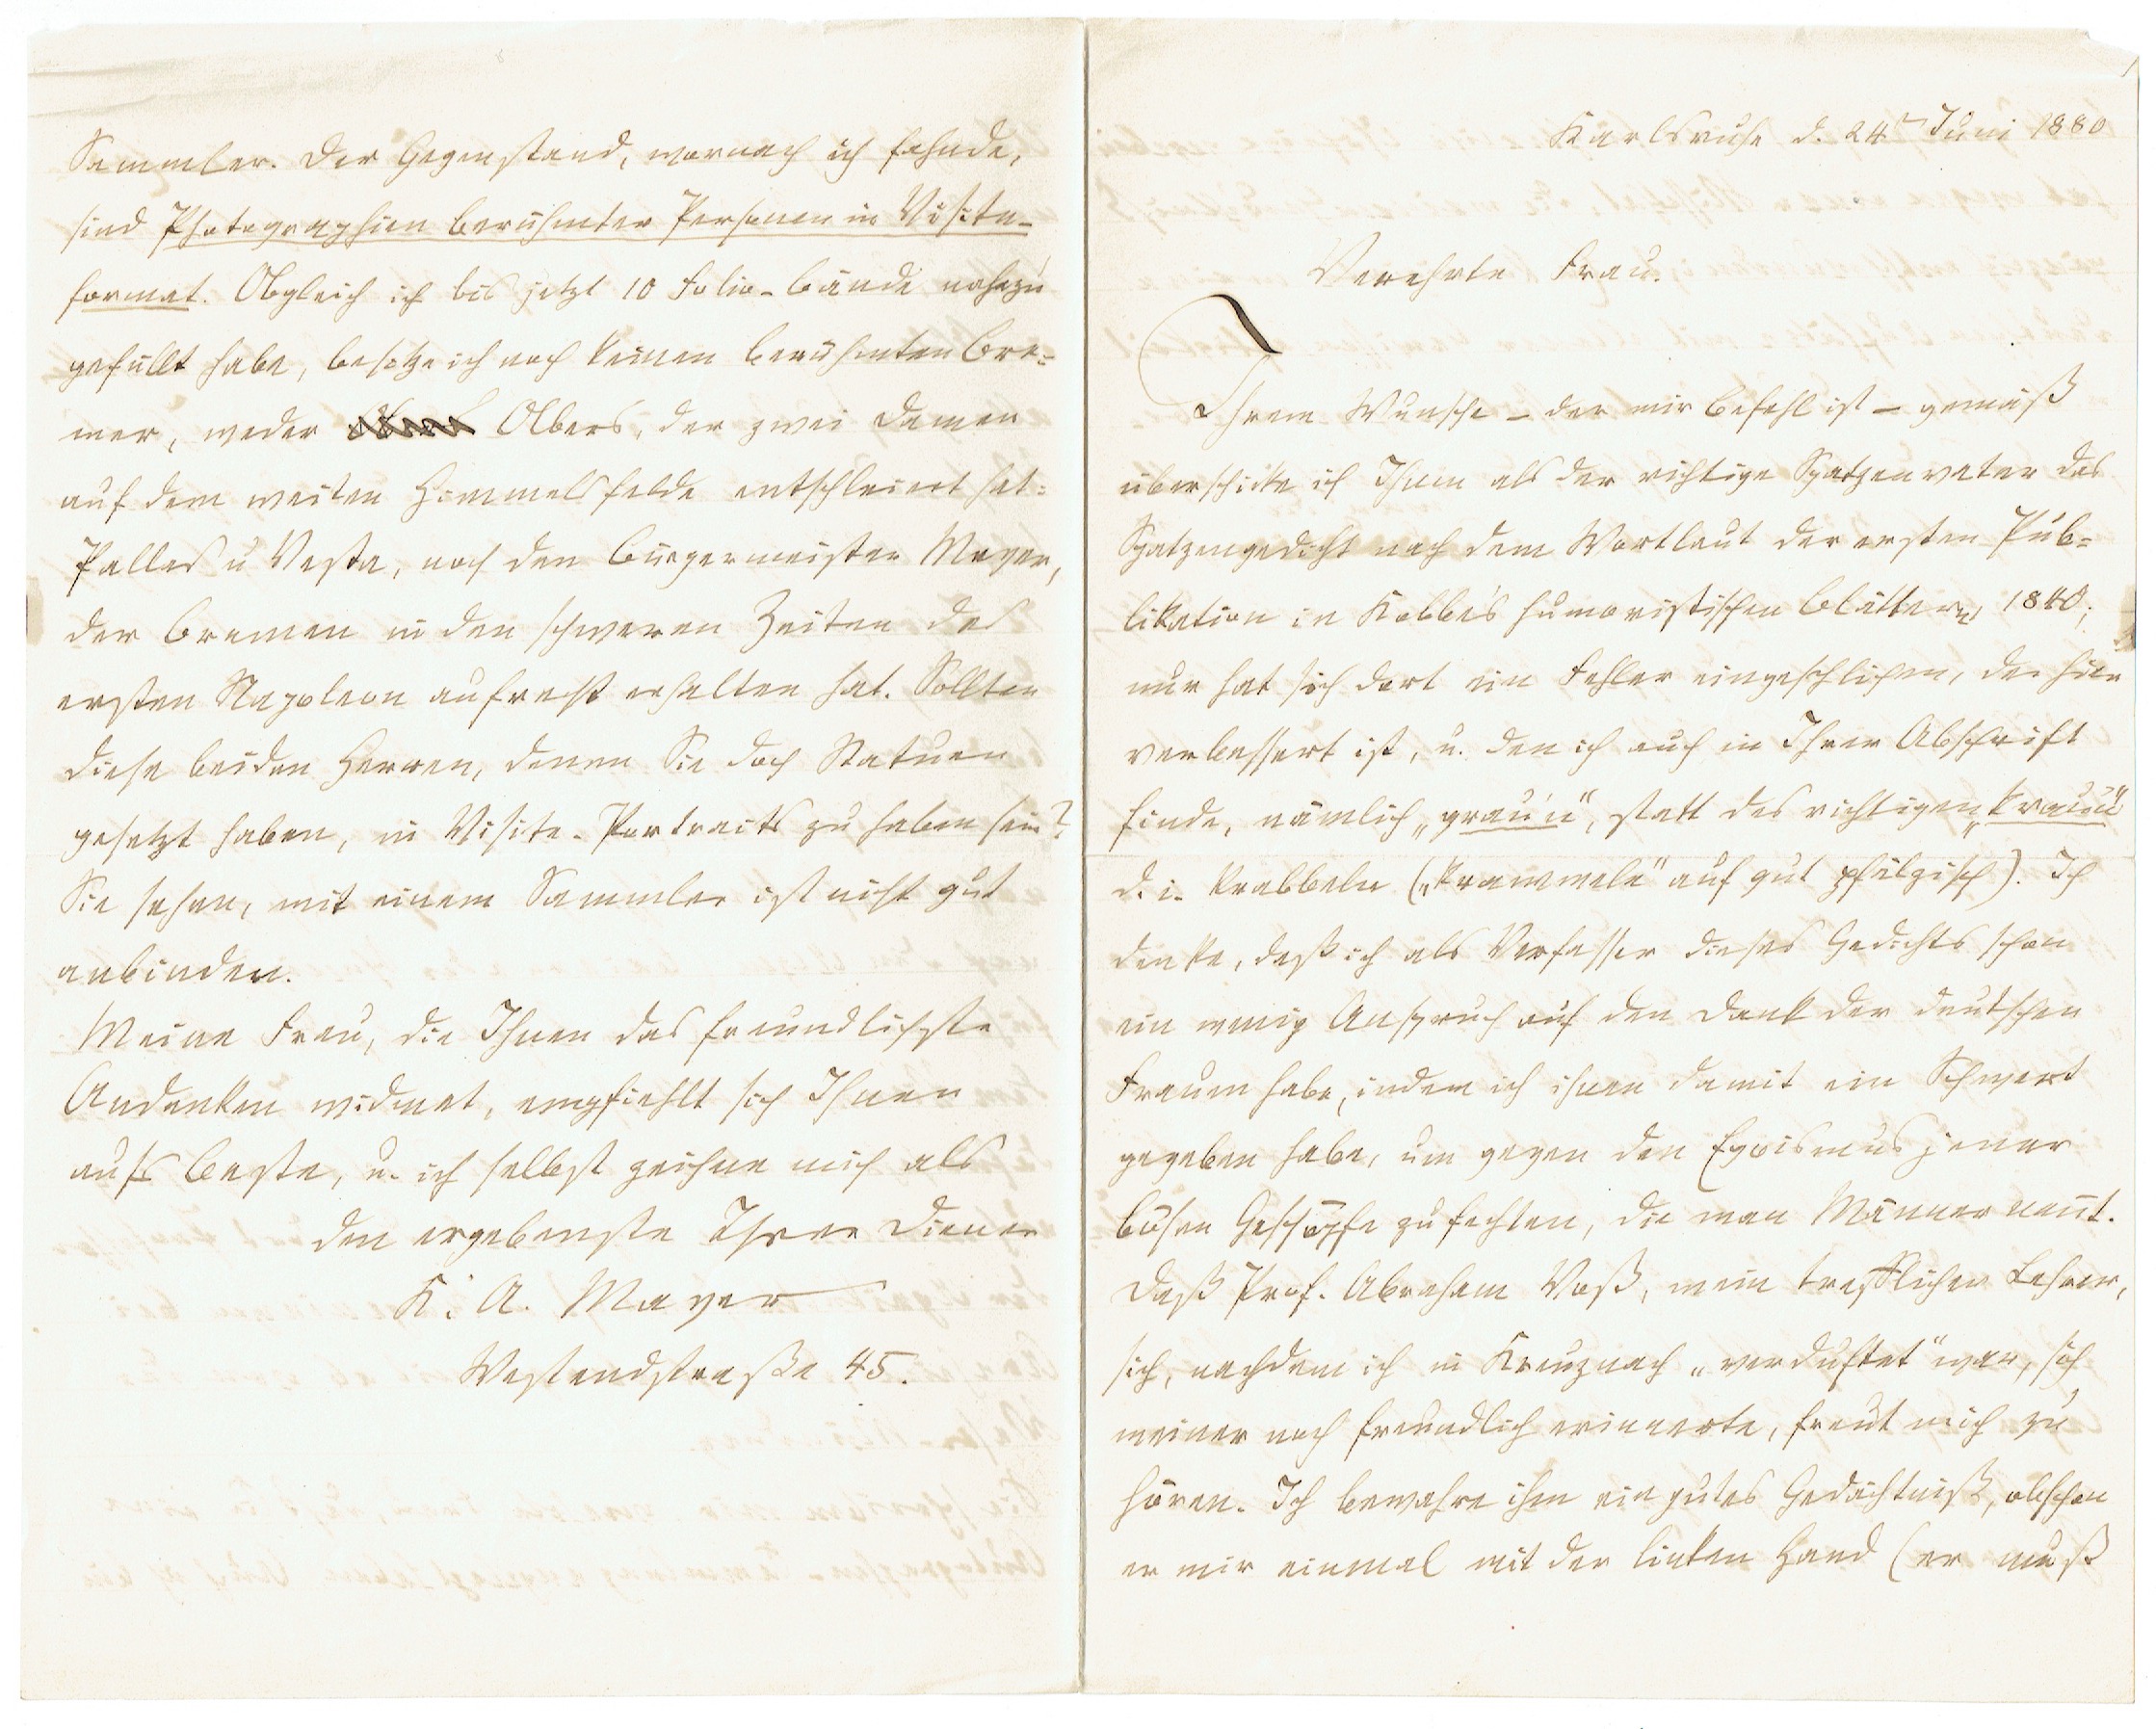 Karlsruhe d. 24n Juni 1880
Verehrte Frau.
Ihrem Wunsche – der mir Befehl ist – gemäß
überschicke ich Ihnen als der richtige Spatzenvater das
Spatzengedicht nach dem Wortlaut der ersten Pub-
likation in Kobbe's humoristischen Blättern, 1840;
nur hat sich dort ein Fehler eingeschlichen, der hier
verbessert ist, u. den ich auch in Ihrer Abschrift
finde, nämlich „grau'n", statt des richtigen „krau'n"
d. i. krabbeln („krammele" auf gut pfälzisch). Ich
denke, daß ich als Verfasser dieses Gedichts schon
ein wenig Anspruch auf den Dank der deutschen
Frauen habe, indem ich ihnen damit ein Schwert
gegeben habe, um gegen den Egoismus jener
bösen Geschöpfe zu fechten, die man Männer nent.
Daß Prof. Abraham Voß, mein trefflicher Lehrer,
sich, nachdem ich in Kreuznach „verduftet" war, sich
meiner noch freundlich erinnerte, freut mich zu
hören. Ich bewahre ihm ein gutes Gedächtniß, obschon
er mir einmal mit der linken Hand (er muß
Sammler. Der Gegenstand, wornach ich fahnde,
sind Photographien berühmter Personen in Visite-
format. Obgleich ich bis jetzt 10 Folio-Bände nahezu
gefüllt habe, besitze ich noch keinen berühmten Bre-
mer, weder Olbers, der zwei Damen
auf dem weiten Himmelsfelde entschleiert hat:
Pallas u Vesta, noch den Bürgermeister Mayer,
der Bremen in den schweren Zeiten des
ersten Napoleon aufrecht erhalten hat. Sollten
diese beiden Herren, denen Sie doch Statuen
gesetzt haben, in Visite-Portraits zu haben sein?
Sie sehen, mit einem Sammler ist nicht gut
anbinden.
Meine Frau, die Ihnen das freundlichste
Andenken widmet, empfiehlt sich Ihnen
aufs Beste, u. ich selbst zeichne mich als
den ergebenste Ihrer Diener
K. A. Mayer
Westendstraße 45.